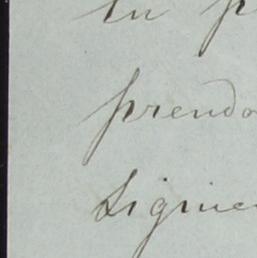 In p
prendo
Signier